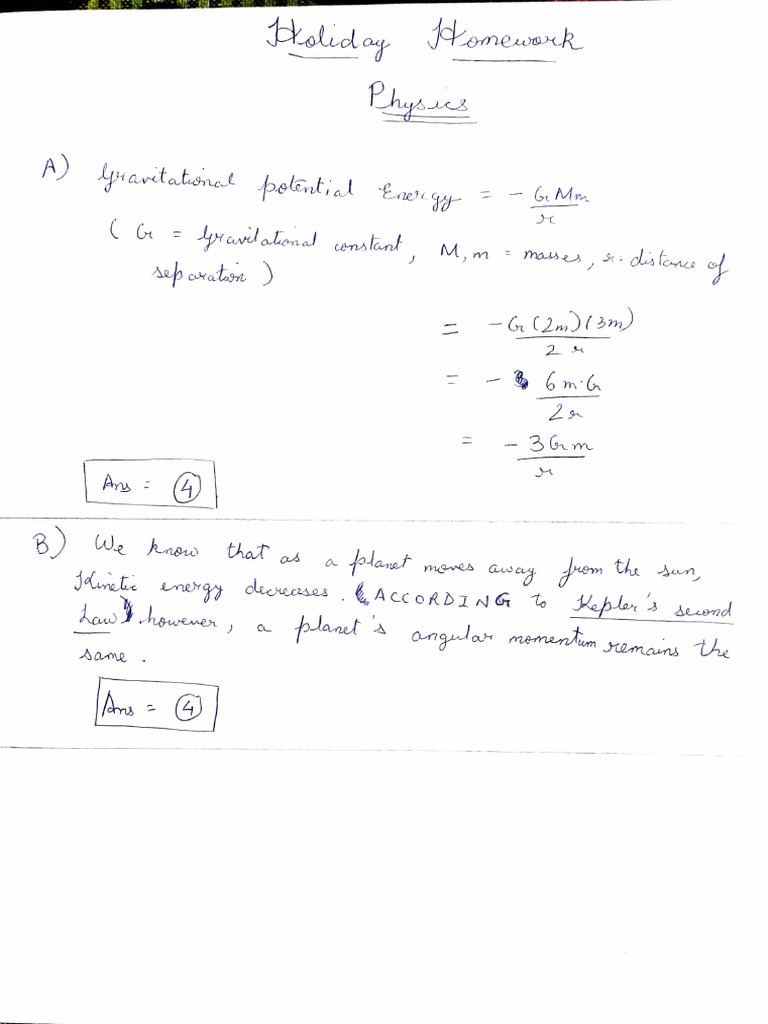 Holiday Homework
Physics
A) Gravitational potential Energy = - GMm/r
( G = Gravitational constant, M, m = masses, r = distance of
separation )
= -G(2m)(3m)/2r
= - 6m·G/2r
= -3Gm/r
Ans = ④
B) We know that as a planet moves away from the sun,
Kinetic energy decreases. ACCORDING to Kepler's second
Law, however, a planet's angular momentum remains the
same.
Ans = ④